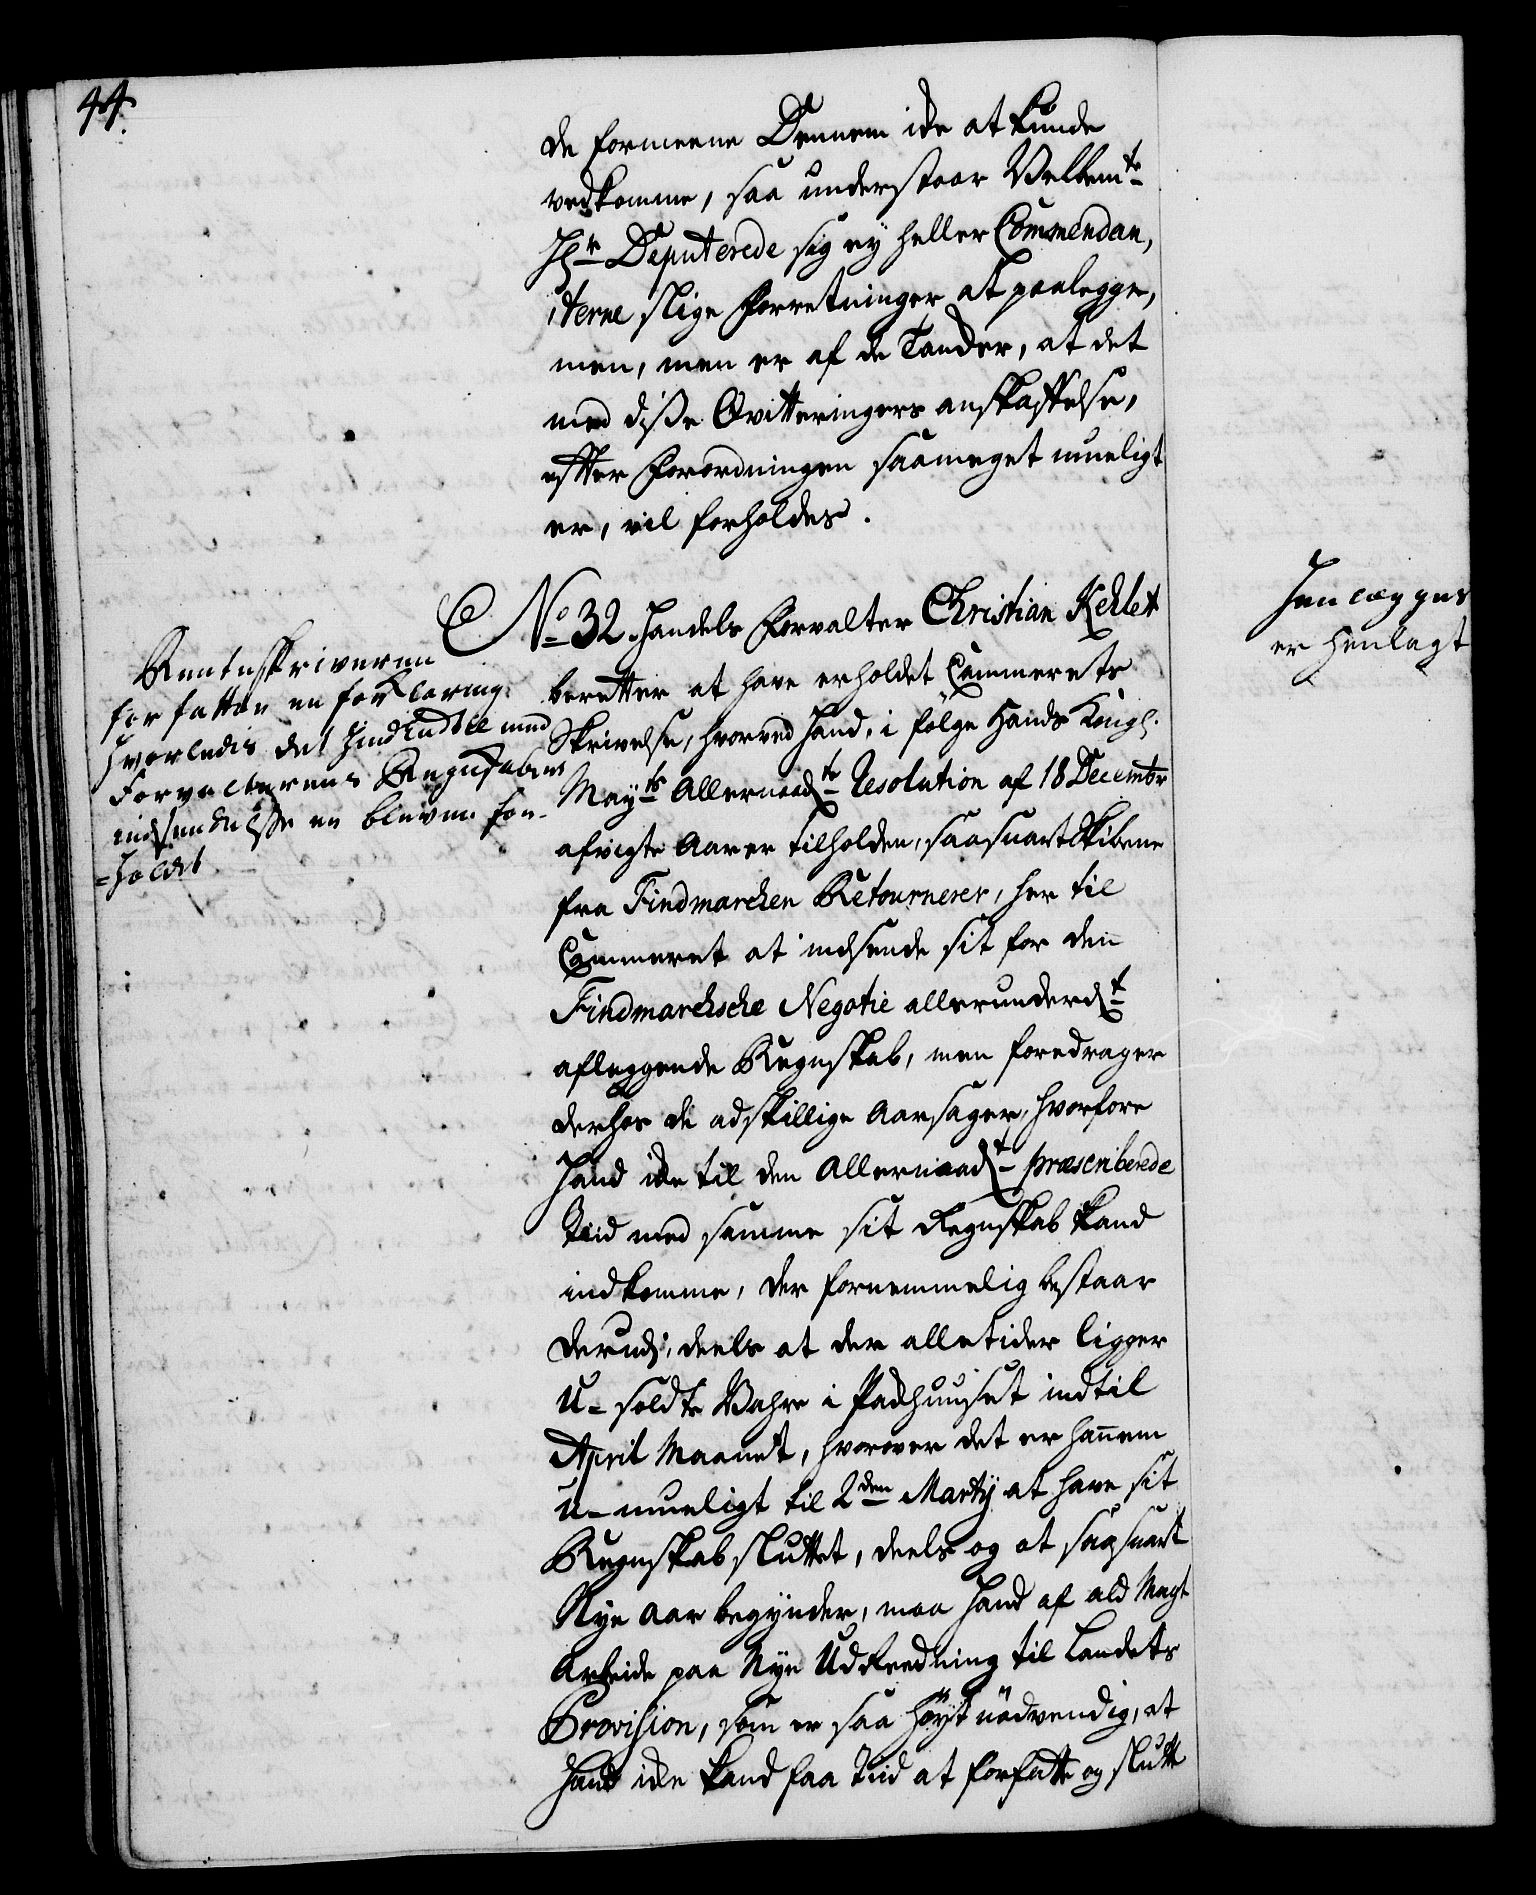 44.
de formeene Dennem icke at kunde
vedkomme, saa understaar Velbemte
Hr Deputerede sig ey heller Commendan,
,terne slige Forretninger at paalegge,
men, men er af de Tancker, at det
med disse Qvitteringers anskaffelse,
efter Forordningen saameget mueligt
er, vil forholdes.
No 32. Handels Forvalter Christian Kehlet
beretter at have erholdet Cammerets
Skrivelse, hvorved Hand, i følge Hands Kongl.
Mayts Allernaadte Resolution af 18 Decembr
afvigte Aar er tilholden, saasnart Skibene
fra Findmarcken Retournerer, her til
Cammeret at indsende sit for den
Findmarchsche Negotie allerunderdt
afleggende Regnskab, men foredrager
derhos de adskillige Aarsager, hvorfore
Hand icke til den Allernaadt præscriberede
Tiid med samme sit Regnskab kand
indkomme, der fornemmelig bestaar
derudj, deels at der alletider ligger
U-soldte Vahre i Packhuuset indtil
April Maanet, hvorover det er hannem
u-mueligt til 2den Martij at have sit
Regnskab sluttet, deels og at saasnart
Nye Aar begynder, maa Hand af ald Magt
Arbeide paa Nye Udreedning til Landets
Provision, som er saa høyst nødvendig, at
Hand icke kand faa Tiid at forfatte og slutte
Renteskriveren
forfatter en forklaring
hvorledis det hid indtil med
Forvalterens Regnskabers
indsendelse er bleven for-
-holdt
Henlægges
er henlagt